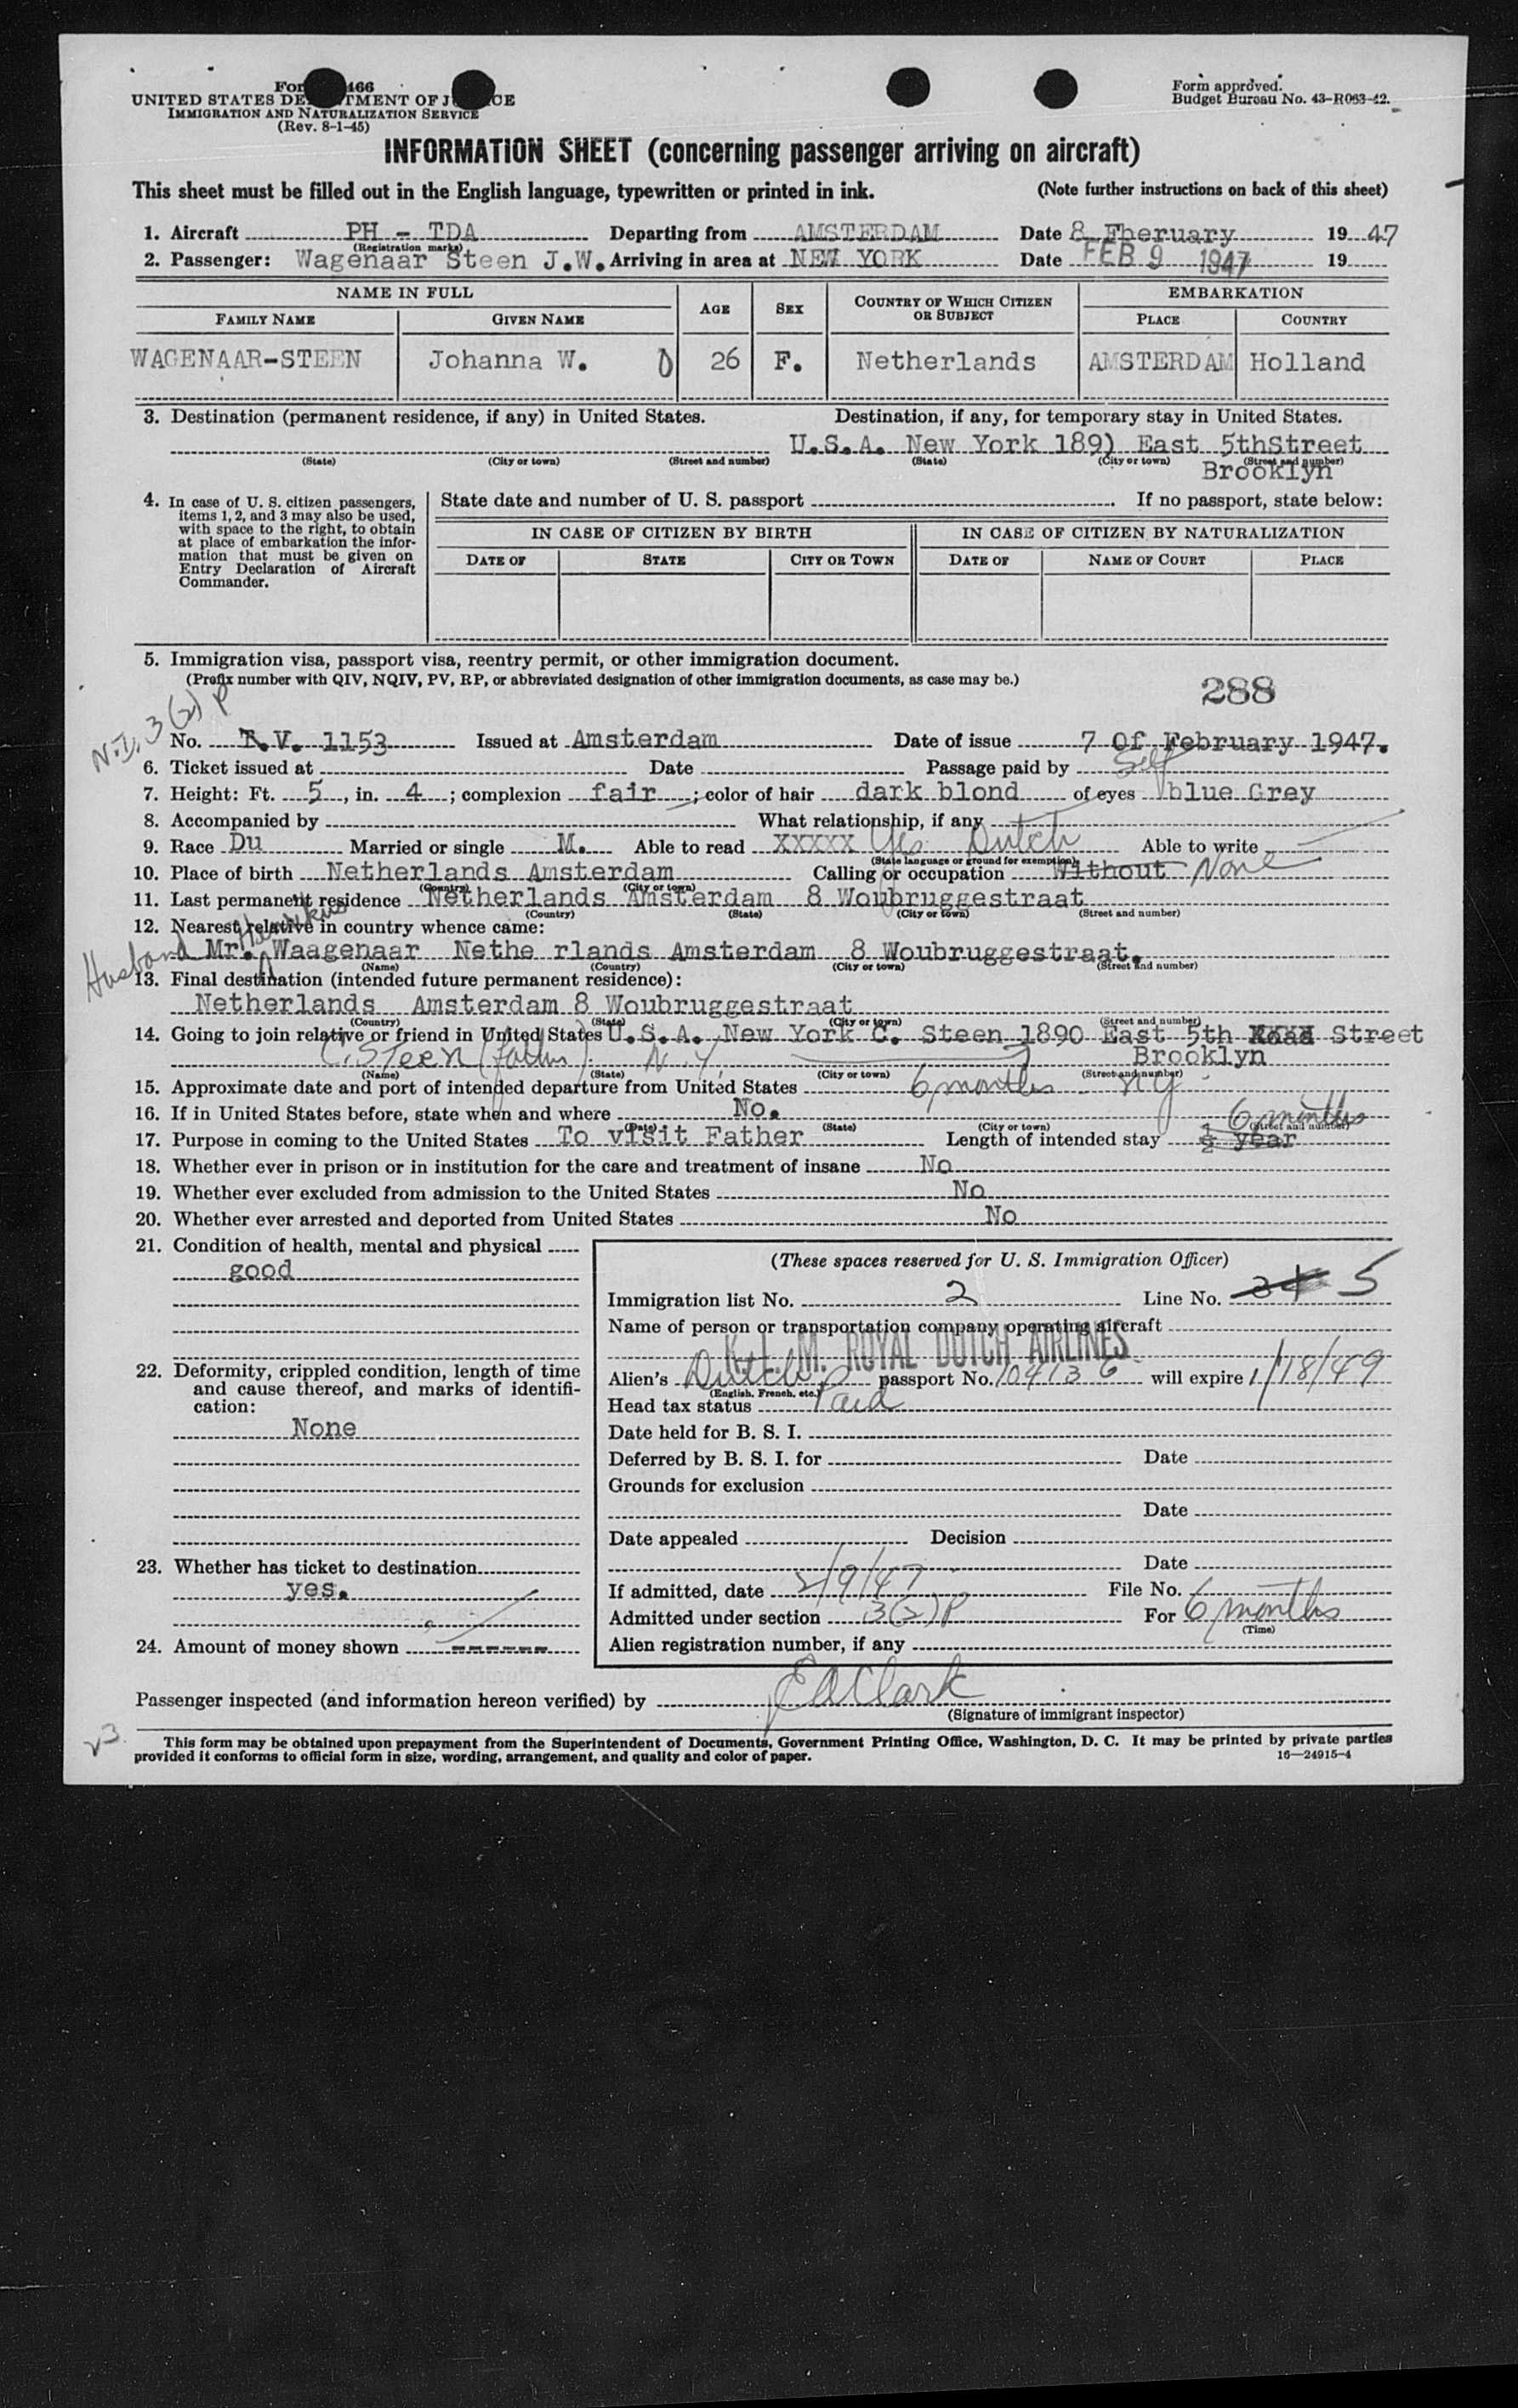 For 466
UNITED STATES DE TMENT OF J CE
IMMIGRATION AND NATURALIZATION SERVICE
(Rev. 8-1-45)
Form approved.
Budget Bureau No. 43-R063-42.
INFORMATION SHEET (concerning passenger arriving on aircraft)
This sheet must be filled out in the English language, typewritten or printed in ink. (Note further instructions on back of this sheet)
1. Aircraft PH - TDA Departing from AMSTERDAM Date 8 Fheruary 19 47
(Registration marks)
2. Passenger: Wagenaar Steen J.W. Arriving in area at NEW YORK Date FEB 9 1947 19
NAME IN FULL AGE SEX COUNTRY OF WHICH CITIZEN OR SUBJECT EMBARKATION
FAMILY NAME GIVEN NAME PLACE COUNTRY
WAGENAAR-STEEN Johanna W. 26 F. Netherlands AMSTERDAM Holland
3. Destination (permanent residence, if any) in United States. Destination, if any, for temporary stay in United States.
U.S.A. New York 189) East 5thStreet
(State) (City or town) (Street and number) (State) (City or town) (Street and number)
Brooklyn
4. In case of U. S. citizen passengers, items 1, 2, and 3 may also be used, with space to the right, to obtain at place of embarkation the information that must be given on Entry Declaration of Aircraft Commander.
State date and number of U. S. passport If no passport, state below:
IN CASE OF CITIZEN BY BIRTH IN CASE OF CITIZEN BY NATURALIZATION
DATE OF STATE CITY OR TOWN DATE OF NAME OF COURT PLACE
5. Immigration visa, passport visa, reentry permit, or other immigration document.
(Prefix number with QIV, NQIV, PV, RP, or abbreviated designation of other immigration documents, as case may be.)
288
N.I. 3(2) P
No. T.V. 1153 Issued at Amsterdam Date of issue 7 Of February 1947.
6. Ticket issued at Date Passage paid by Self
7. Height: Ft. 5, in. 4; complexion fair; color of hair dark blond of eyes blue Grey
8. Accompanied by What relationship, if any
9. Race Du Married or single M. Able to read XXXXX Yes Dutch Able to write
(State language or ground for exemption)
10. Place of birth Netherlands Amsterdam Calling or occupation Without None
(Country) (City or town)
11. Last permanent residence Netherlands Amsterdam 8 Woubruggestraat
(Country) (State) (City or town) (Street and number)
12. Nearest relative in country whence came:
Husband Mr. Waagenaar Nethe rlands Amsterdam 8 Woubruggestraat.
(Name) (Country) (City or town) (Street and number)
13. Final destination (intended future permanent residence):
Netherlands Amsterdam 8 Woubruggestraat
(Country) (State) (City or town) (Street and number)
14. Going to join relative or friend in United States U.S.A. New York C. Steen 1890 East 5th Road Street
C. Steen (father) N.Y. Brooklyn
(Name) (State) (City or town) (Street and number)
15. Approximate date and port of intended departure from United States 6 months NY
16. If in United States before, state when and where No.
(Date) (State) (City or town) (Street and number)
6 months
17. Purpose in coming to the United States To visit Father Length of intended stay ½ year
18. Whether ever in prison or in institution for the care and treatment of insane No
19. Whether ever excluded from admission to the United States No
20. Whether ever arrested and deported from United States No
21. Condition of health, mental and physical
good
22. Deformity, crippled condition, length of time and cause thereof, and marks of identification:
None
23. Whether has ticket to destination
yes.
24. Amount of money shown ------
(These spaces reserved for U. S. Immigration Officer)
Immigration list No. 2 Line No. 24 5
Name of person or transportation company operating aircraft
K. L. M. ROYAL DUTCH AIRLINES
Alien's Dutch passport No. 104136 will expire 1/18/49
(English, French, etc.)
Head tax status Paid
Date held for B. S. I.
Deferred by B. S. I. for Date
Grounds for exclusion
Date
Date appealed Decision
Date
If admitted, date 2/9/47 File No.
Admitted under section 3(2)P For 6 months
(Time)
Alien registration number, if any
Passenger inspected (and information hereon verified) by E A Clark
(Signature of immigrant inspector)
v3
This form may be obtained upon prepayment from the Superintendent of Documents, Government Printing Office, Washington, D. C. It may be printed by private parties
provided it conforms to official form in size, wording, arrangement, and quality and color of paper. 16—24915-4